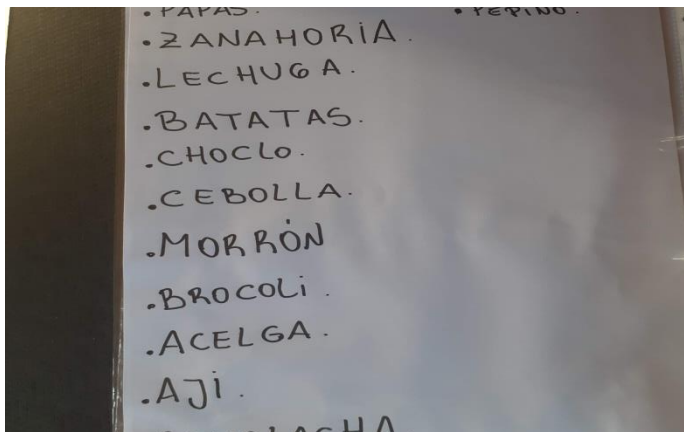 • PAPAS. • PEPINO.
• ZANAHORIA.
• LECHUGA.
• BATATAS.
• CHOCLO.
• CEBOLLA.
• MORRÓN
• BROCOLi.
• ACELGA.
• AJi.